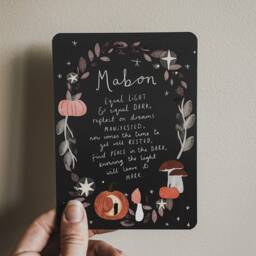 Mabon
Equal LIGHT
& equal DARK,
reflect on dreams
MANIFESTED,
now comes the time to
get well RESTED,
find PEACE in the DARK,
knowing the light
will leave its
MARK.